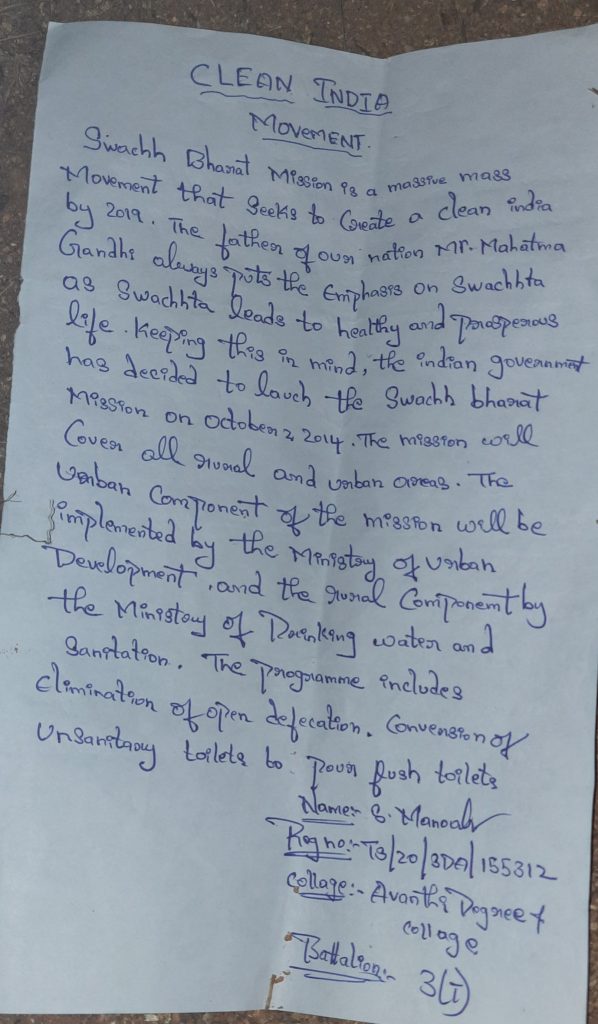 CLEAN INDIA
MOVEMENT.
Swachh Bharat Mission is a massive mass
Movement that seeks to Create a clean india
by 2019. The father of our nation Mr. Mahatma
Gandhi always puts the Emphasis on Swachhta
as Swachhta leads to healthy and prosperous
life. Keeping this in mind, the indian government
has decided to lauch the Swachh bharat
Mission on October 2 2014. The mission will
Cover all rural and urban areas. The
Urban Component of the mission will be
implemented by the Ministry of Urban
Development, and the rural Component by
the Ministry of Drinking water and
Sanitation. The programme includes
elimination of open defecation. Conversion of
Unsanitary toilets to pour flush toilets
Name:- S. Manoah
Reg no:- TS/20/SDA/155312
Collage:- Avanthi Degree &
collage
Battalion:- 3(T)